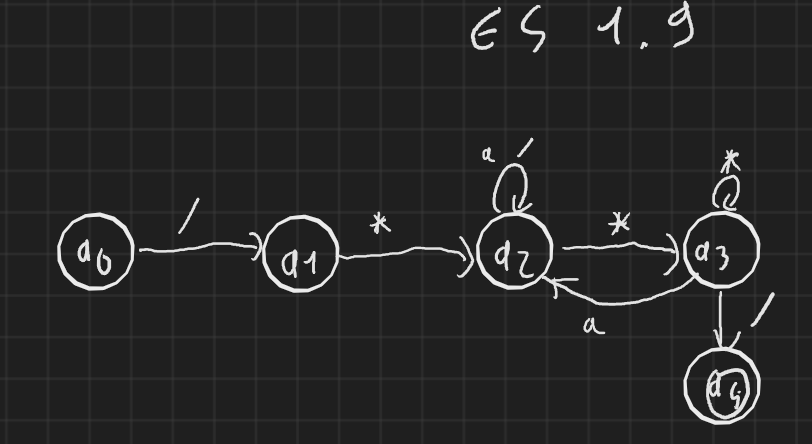 ES 1.9
a /
*
/
*
*
q0
q1
q2
q3
a
/
q4